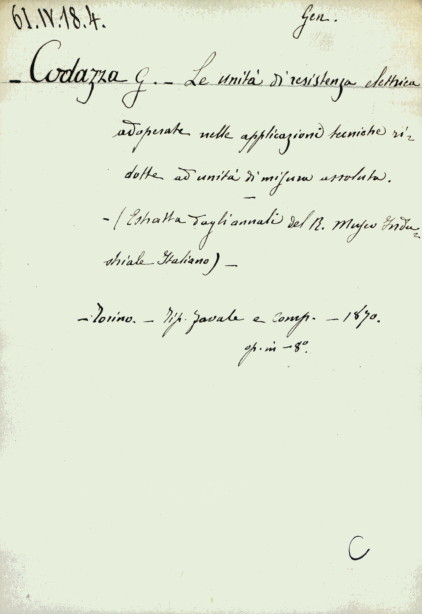 61.IV.18.4.
Gen.
- Codazza G. - Le unità di resistenza elettrica
adoperate nelle applicazioni tecniche ri-
dotte ad unità di misura assoluta. -
- (Estratta dagli annali del R. Museo Indu-
striale Italiano) -
- Torino. - Tip. Favale e Comp. - 1870.
op. in - 8º.
C